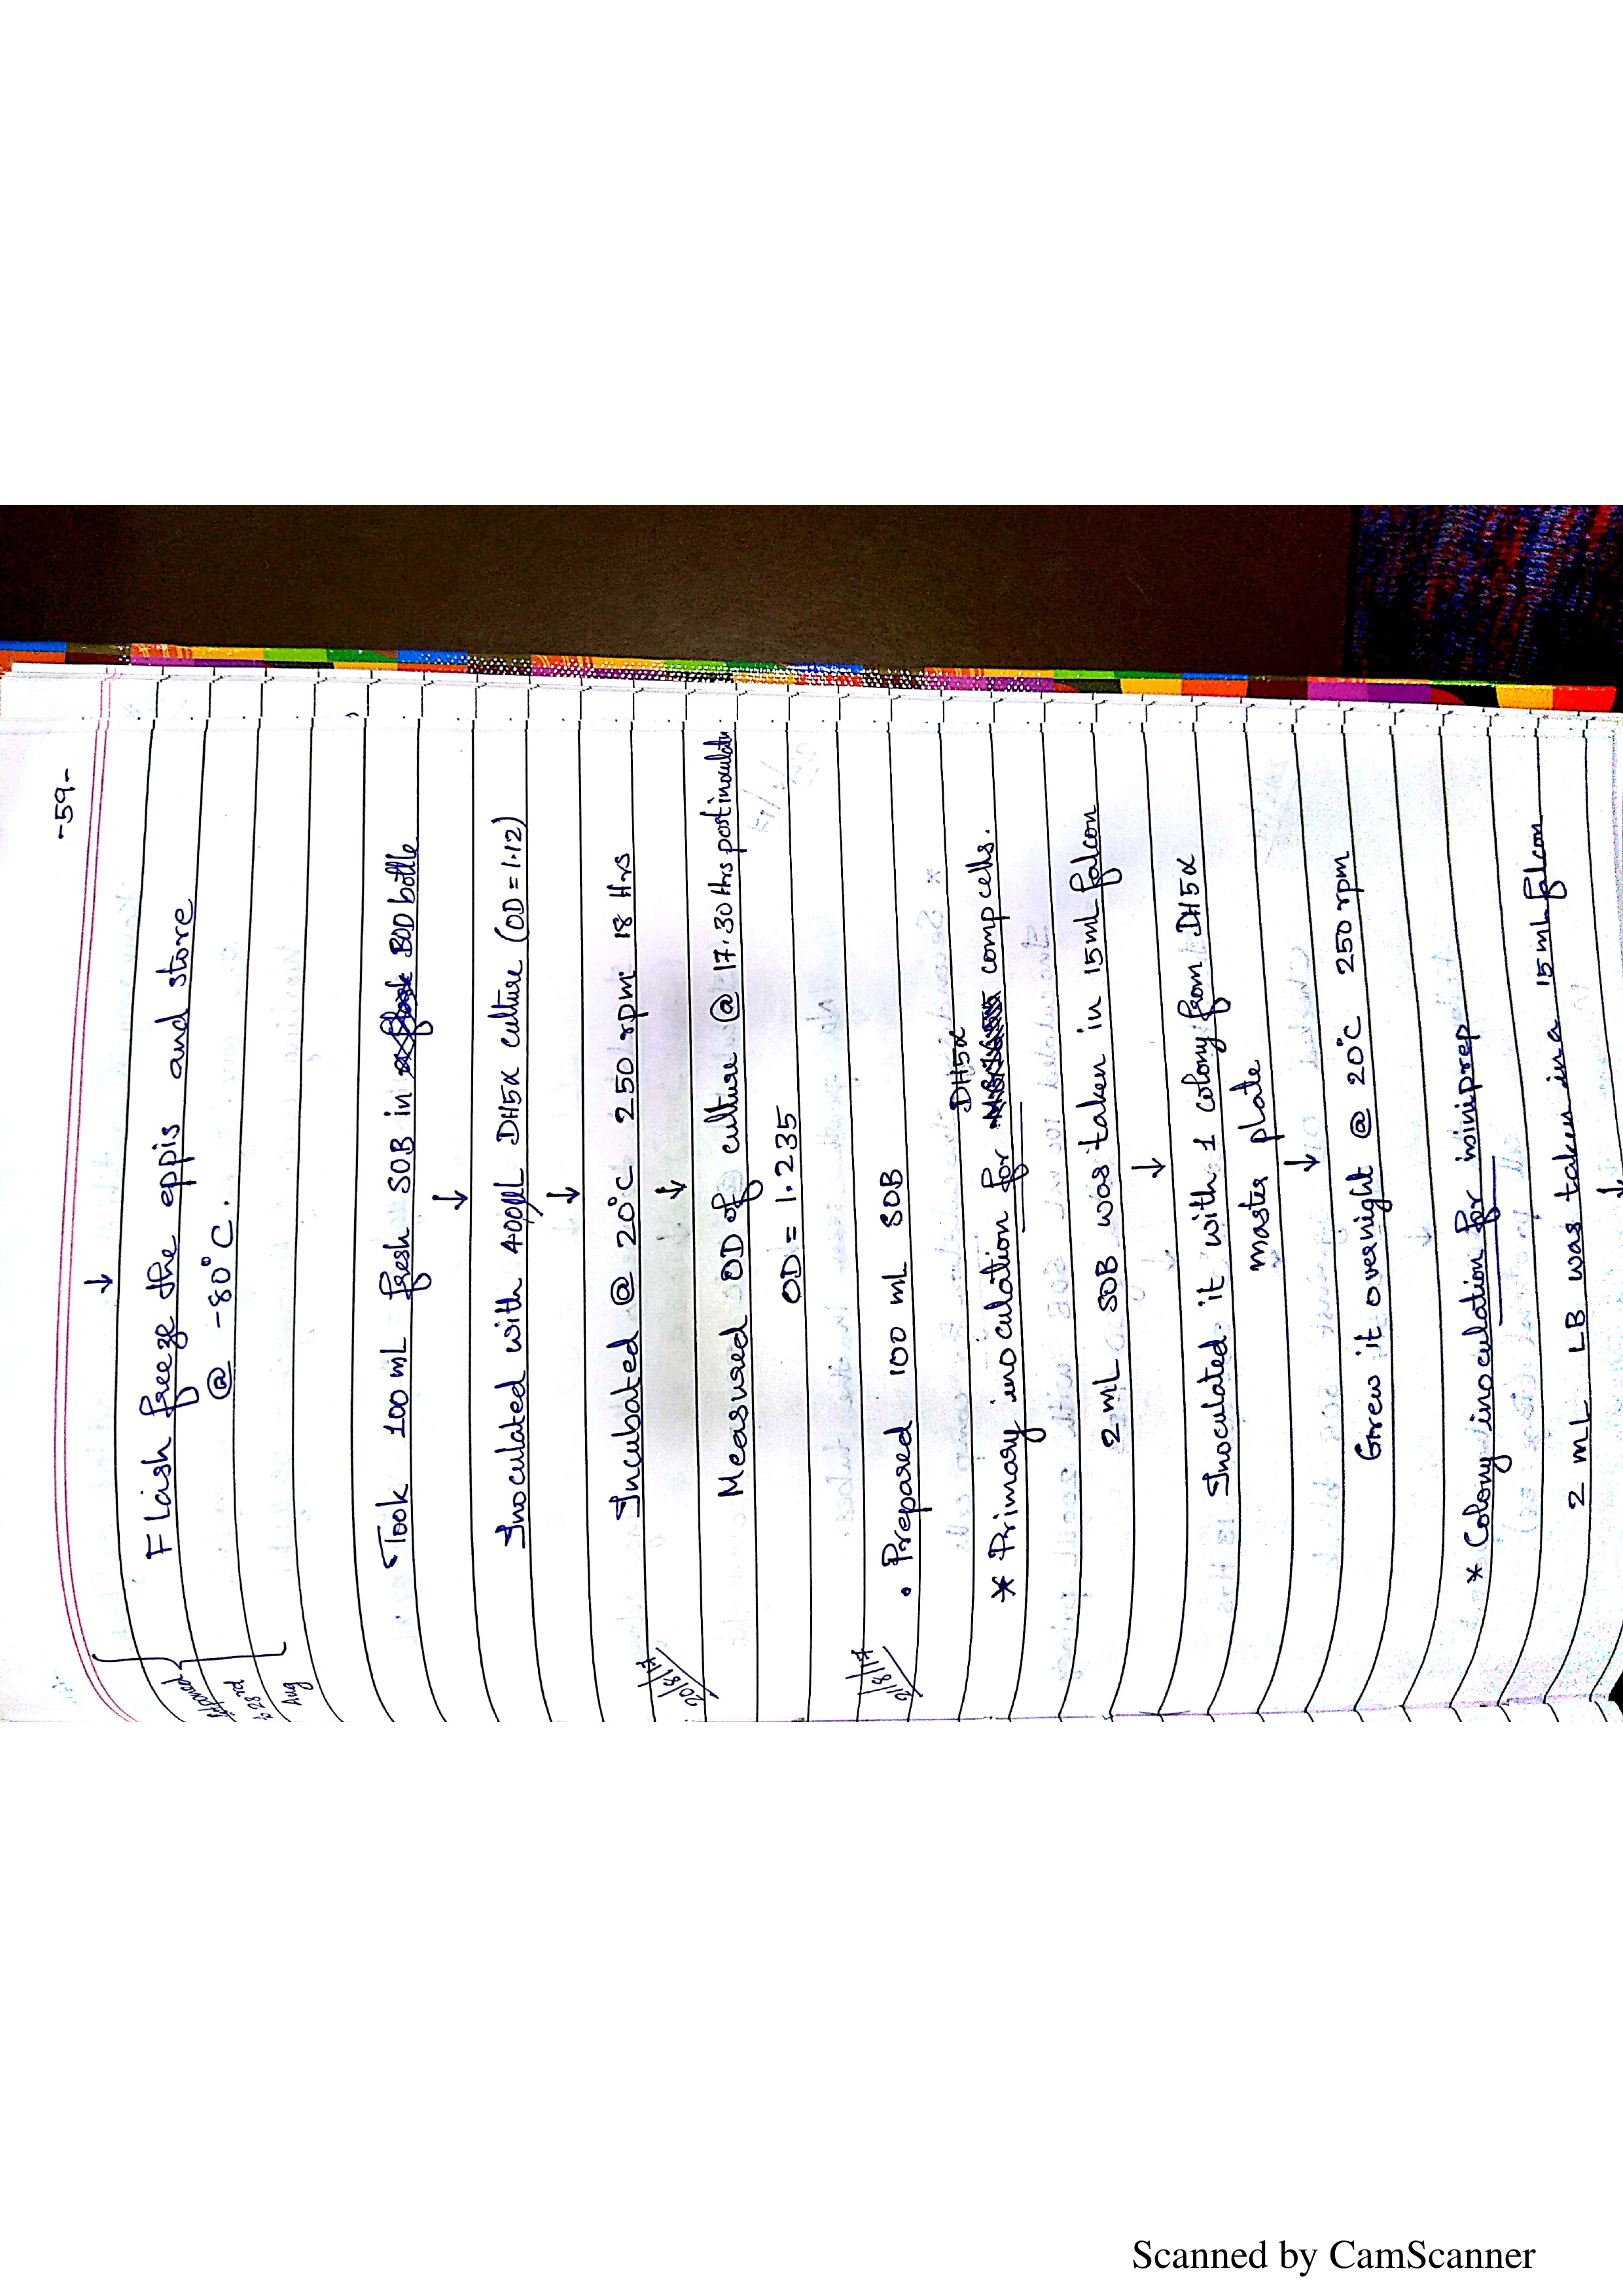 -59-
↓
Flash freeze the eppis and store
@ -80°C.
& 23rd
Aug
Took 100 mL fresh SOB in BOD bottle
↓
Inoculated with 400µL DH5α culture (OD = 1.12)
↓
Incubated @ 20°C 250 rpm 18 Hrs
↓
20/8/17
Measured OD of culture @ 17:30 Hrs post inoculatn
OD = 1.235
21/8/17
• Prepared 100 mL SOB
DH5α
* Primary inoculation for comp cells.
2 mL SOB was taken in 15mL falcon
↓
Inoculated it with 1 colony from DH5α
master plate
↓
Grew it overnight @ 20°C 250 rpm
* Colony inoculation for miniprep
2 mL LB was taken in a 15mL falcon
↓
Scanned by CamScanner